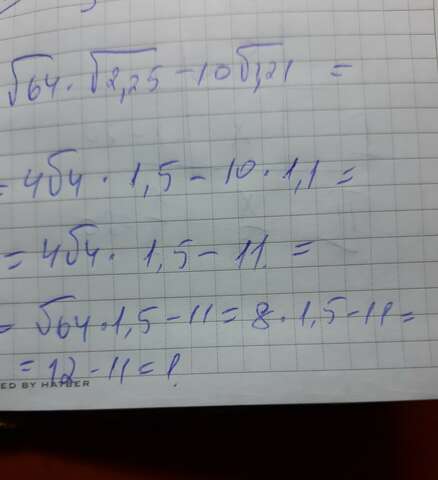 √64 · √2,25 - 10√1,21 =
= 4√4 · 1,5 - 10 · 1,1 =
= 4√4 · 1,5 - 11 =
= √64 · 1,5 - 11 = 8 · 1,5 - 11 =
= 12 - 11 = 1.